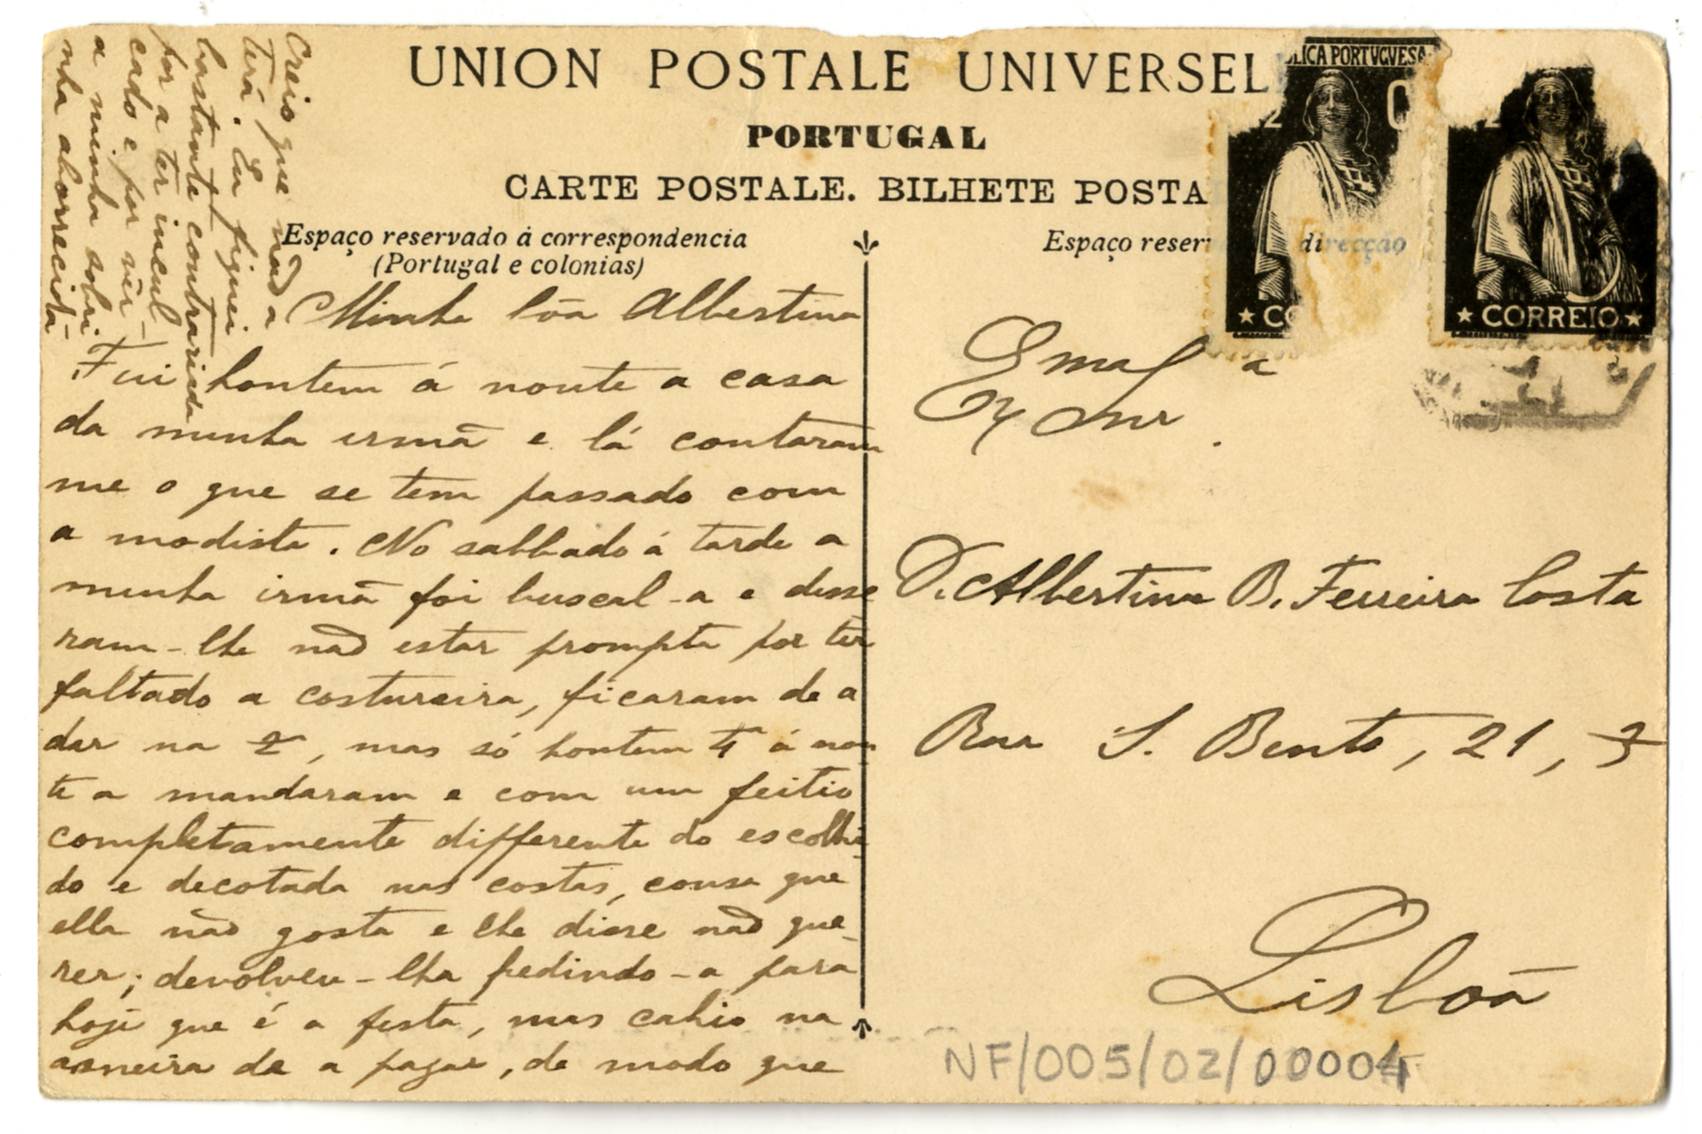 UNION POSTALE UNIVERSEL
PORTUGAL
CARTE POSTALE. BILHETE POSTA
Espaço reservado á correspondencia
(Portugal e colonias)
Minha bôa Albertina
Fui hontem á noute a casa
da minha irmã e lá contaram
me o que se tem passado com
a modista. No sabbado á tarde a
minha irmã foi buscal-a e disse
ram-lhe não estar prompta por ter
faltado a costureira, ficaram de a
dar na 2ª, mas só hontem 4ª á nou
te a mandaram e com um feitio
completamente differente do escolhi-
do e decotada nas costas, cousa que
ella não gosta e lhe disse não que-
rer; devolveu-lha pedindo-a para
hoje que é a festa, mas cahio na
asneira de a pagar, de modo que
Creio que não a
terá. Eu fiquei
bastante contrariada
por a ter incul-
cado e por vêr
a minha sobri
nha aborrecida
Espaço reser
direcção
LICA PORTUGUESA
C
★ CO
★ CORREIO ★
Exma
Snr
a
D. Albertina B. Ferreira Costa
Rua S. Bento, 21, 3
Lisbôa
NF/005/02/00004